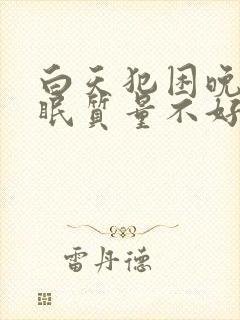 白天犯困晚
眠质量不好
雷丹德